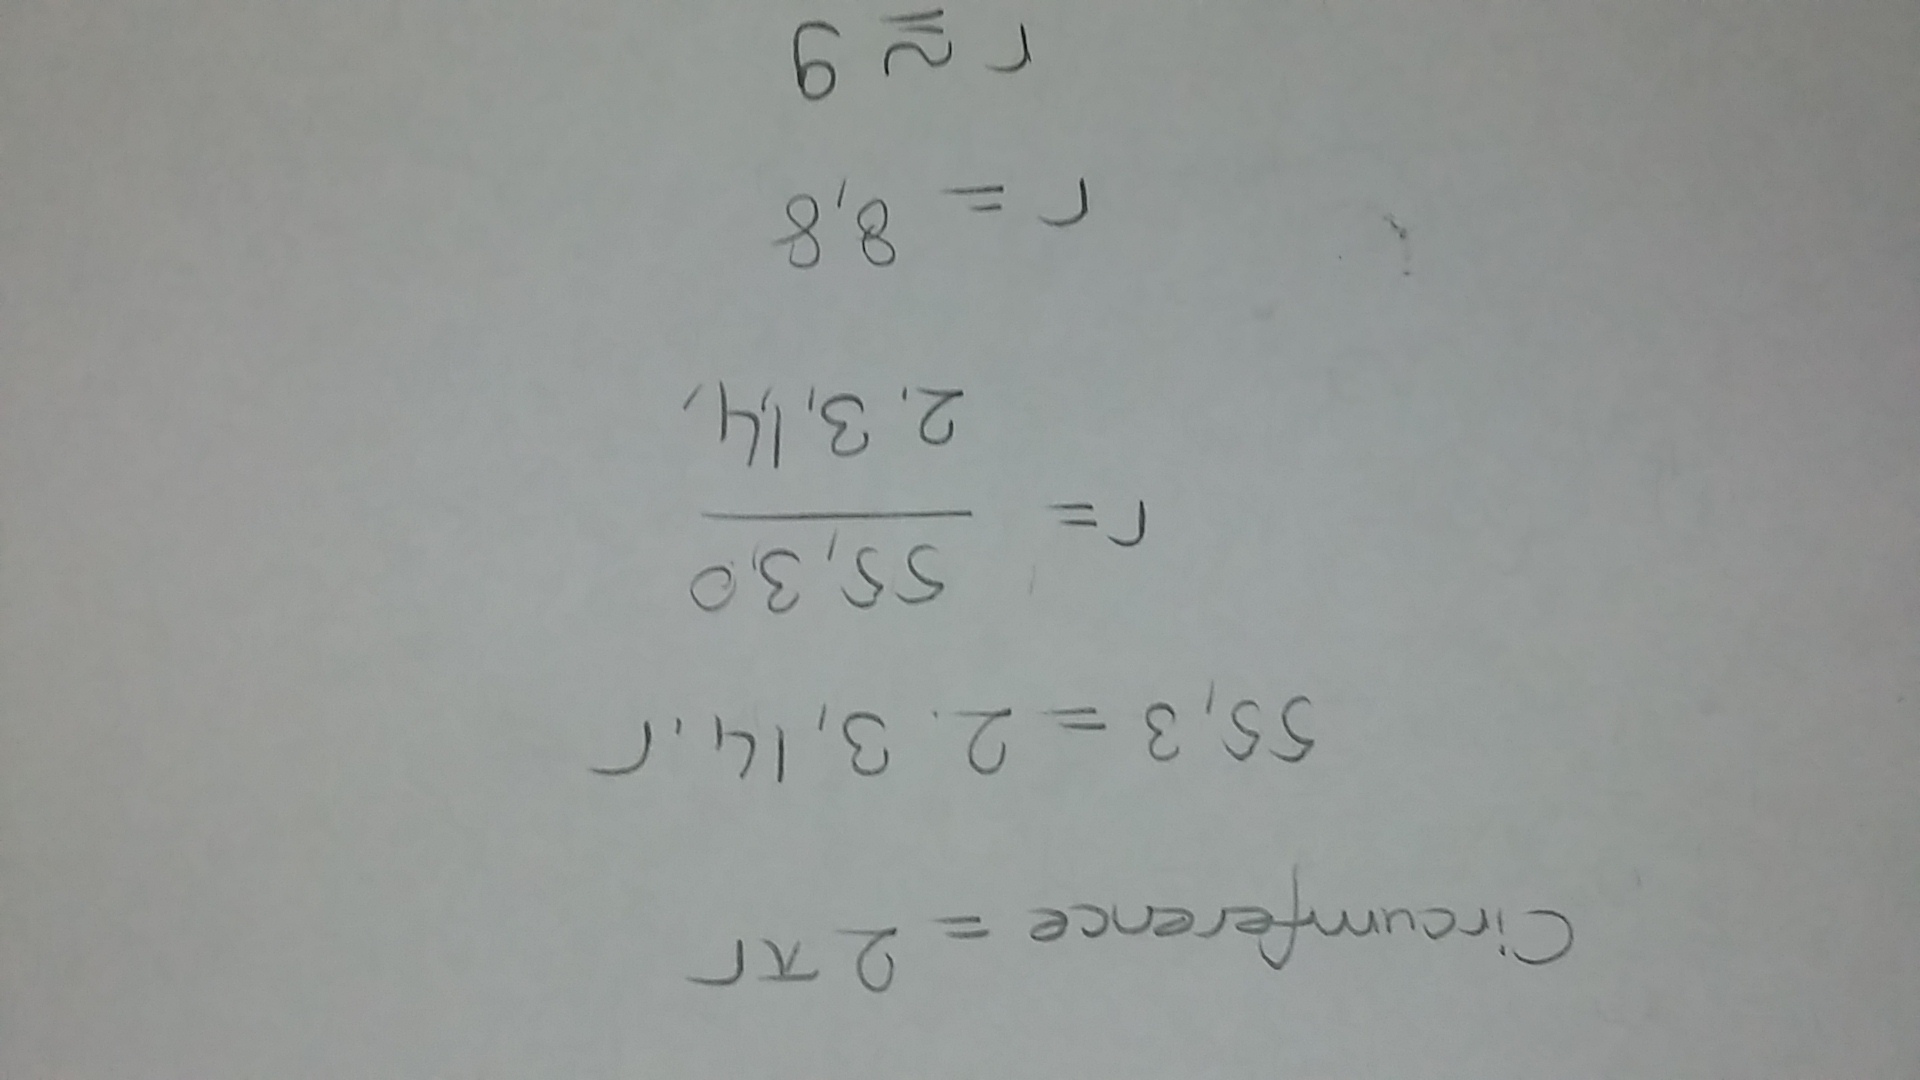 Circumference = 2πr
55,3 = 2. 3,14. r
r = 55,3,0 / 2. 3,1,4,
r = 8,8
r ≅ 9